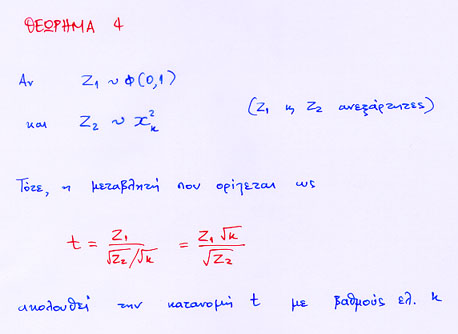 ΘΕΩΡΗΜΑ 4
Αν Z₁ ~ Φ(0,1)
και Z₂ ~ χ²ₖ (Z₁ ϗ Z₂ ανεξάρτητες)
Τότε, η μεταβλητή που ορίζεται ως
t = Z₁ / (√Z₂/√k) = Z₁√k / √Z₂
ακολουθεί την κατανομή t με βαθμούς ελ. k